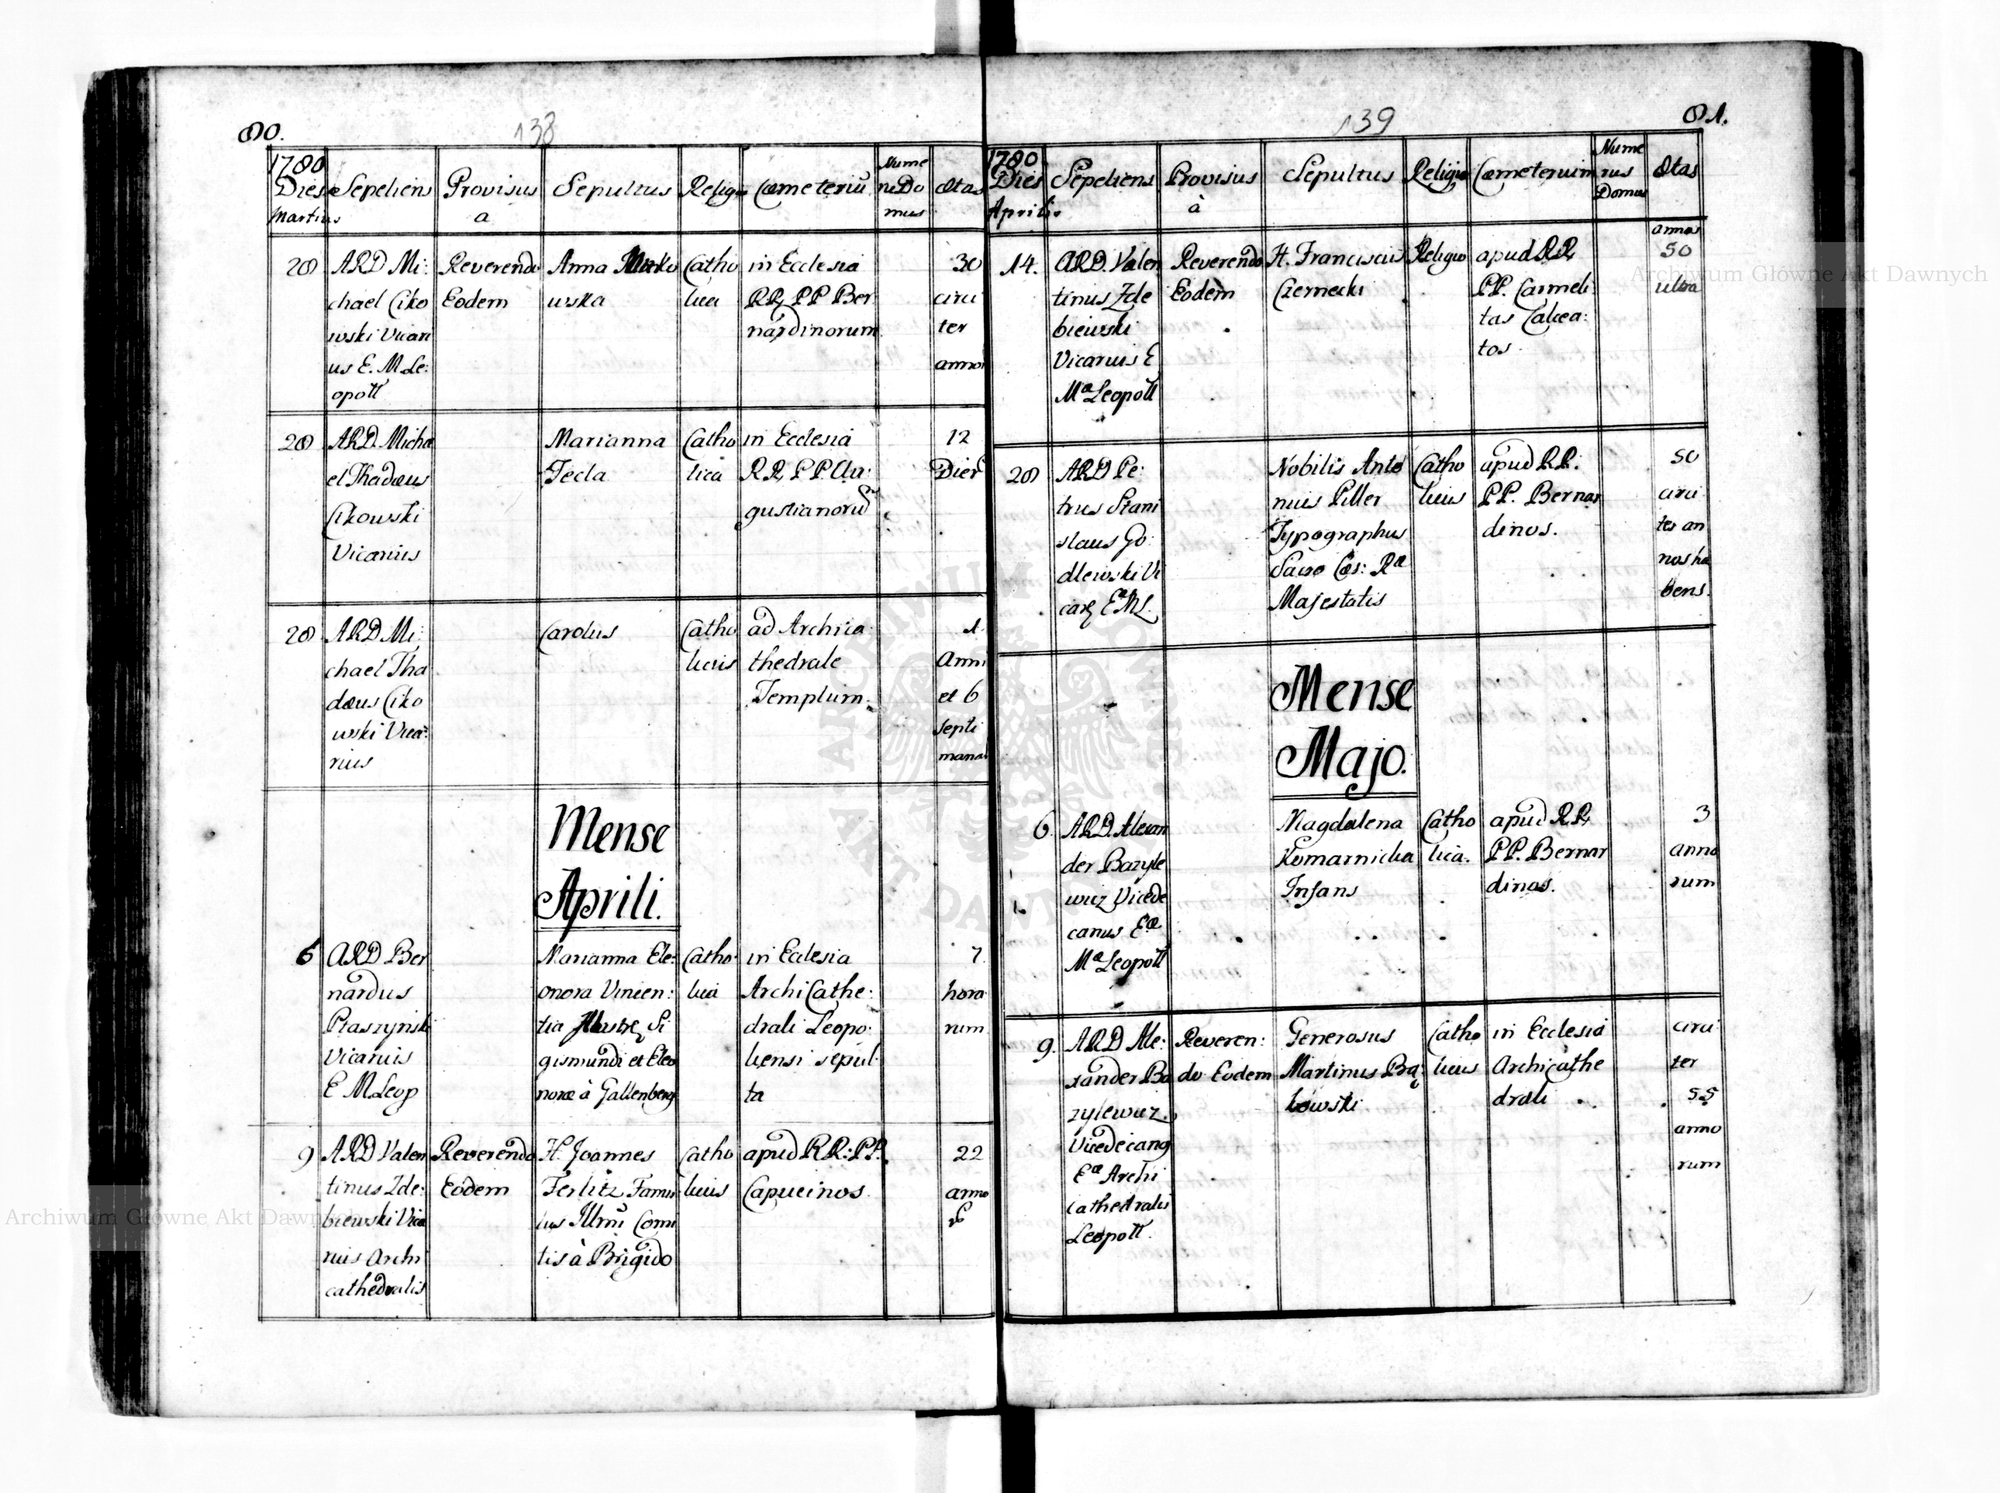 80.
138
1780
Dies
Martius
Sepeliens
Provisus
a
Sepultus
Relig
Cœmeteriū
Nume
rꝰ Do
mus
Ætas
28
ARD Mi:
chael Ciko
wski Vicari
us E. M Le:
opoll
Reverendo
Eodem
Anna
wska
Catho
lica
in Ecclesia
RR PP Ber
nardinorum
30
circi
ter
annor
28
ARD. Micha
el Thadæus
Cikowski
Vicarius
Marianna
Tecla
Catho
lica
in Ecclesia
RR PP Au:
gustianorū
12
Dier
28
ARD Mi:
chael Tha
dæus Ciko
wski Vica:
rius
Carolus
Catho
licus
ad Archica
thedrale
Templum.
1
Anni
et 6
septi
mana
Mense
Aprili.
6
ARD Ber
nardus
Ptaszyński
Vicarius
E M Leop
Marianna Ele:
onora Vincen:
tia Si
gismundi et Eleo
noræ à Gallenberg
Catho
lica
in Ecclesia
ArchiCathe:
drali Leopo:
liensi sepul
ta
7
hora
rum
9
ARD Valen
tinus Zde:
bienski Vica
rius Archi
cathedralis
Reverendo
Eodem
H. Joannes
Ferlitz Famu
lus Illmi Comi
tis à Brigido
Catho
licus
apud RR: PP.
Capucinos.
22
anno
139
81.
1780
Dies
Aprilis
Sepeliens
Provisus
à
Sepultus
Religio
Cœmeterium
Nume
rus
Domus
Ætas
14.
ARD. Valen
tinus Zde
biewski
Vicarius E
Mæ Leopoll
Reverendo
Eodem
H. Franciscus
Czernecki
Religio
apud RR
PP. Carmeli
tas Calcea:
tos
annos
50
ultra
28
ARD Pe:
trus Stani
slaus Go:
dlewski Vi
Nobilis Anto
nius Piller
Typographus
Sacræ Cæs: Ræ
Majestatis
Catho
licus
apud RR.
PP. Bernar
dinos.
50
circi
ter an
nos ha
bens.
Mense
Majo.
6.
ARD. Alexan
der Bazyle
wicz Vicede
canus Eæ
Mæ Leopoll
Magdalena
Komarnicka
Infans
Catho
lica.
apud RR
PP. Bernar
dinos.
3
anno
rum
9.
ARD Ale:
xander Ba
zylewicz
Vicedecanꝰ
Eæ Archi
cathedralis
Leopoll.
Reveren:
do Eodem
Generosus
Martinus Brą:
kowski
Catho
licus
in Ecclesia
Archicathe
drali
circi
ter
55
anno
rum
Archiwum Główne Akt Dawnych
Archiwum Główne Akt Dawnych
ARCHIWUM GŁÓWNE AKT DAWNYCH